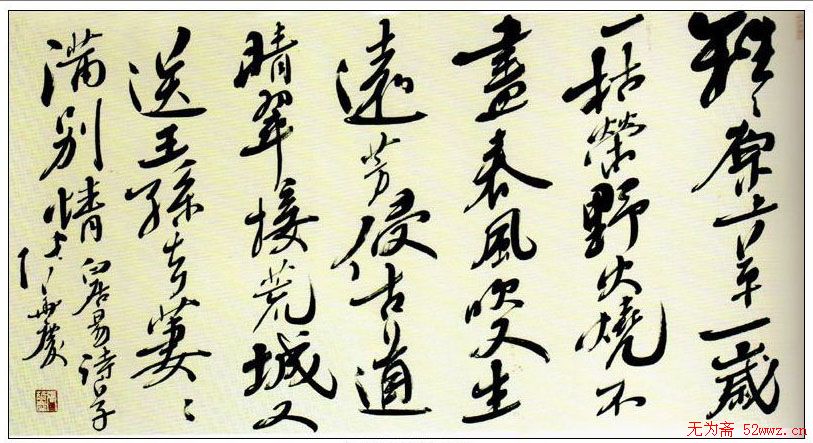 離〻原上草一歲
一枯榮野火燒不
盡春風吹又生
遠芳侵古道
晴翠接荒城又
送王孫去萋〻
滿別情
白居易詩
无为斋 52wwz.cn